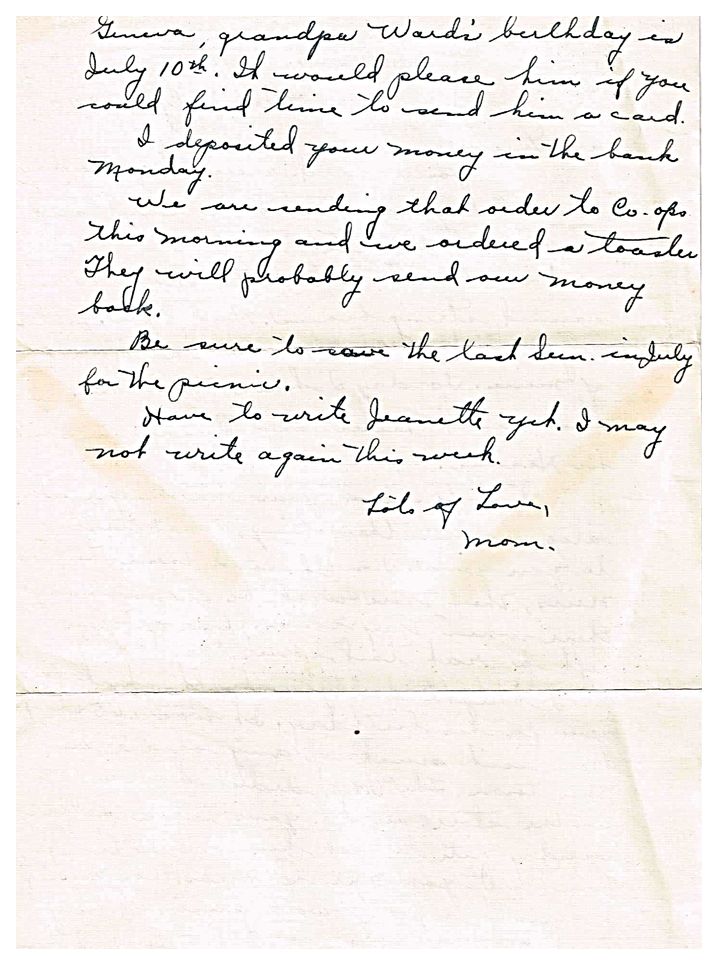 Geneva, grandpa Ward's birthday is
July 10th. It would please him if you
could find time to send him a card.
I deposited your money in the bank
Monday.
We are sending that order to Co-ops
this morning and we ordered a toaster
They will probably send our money
back.
Be sure to save the last Sun. in July
for the picnic.
Have to write Jeanette yet. I may
not write again this week.
Lots of Love,
Mom.